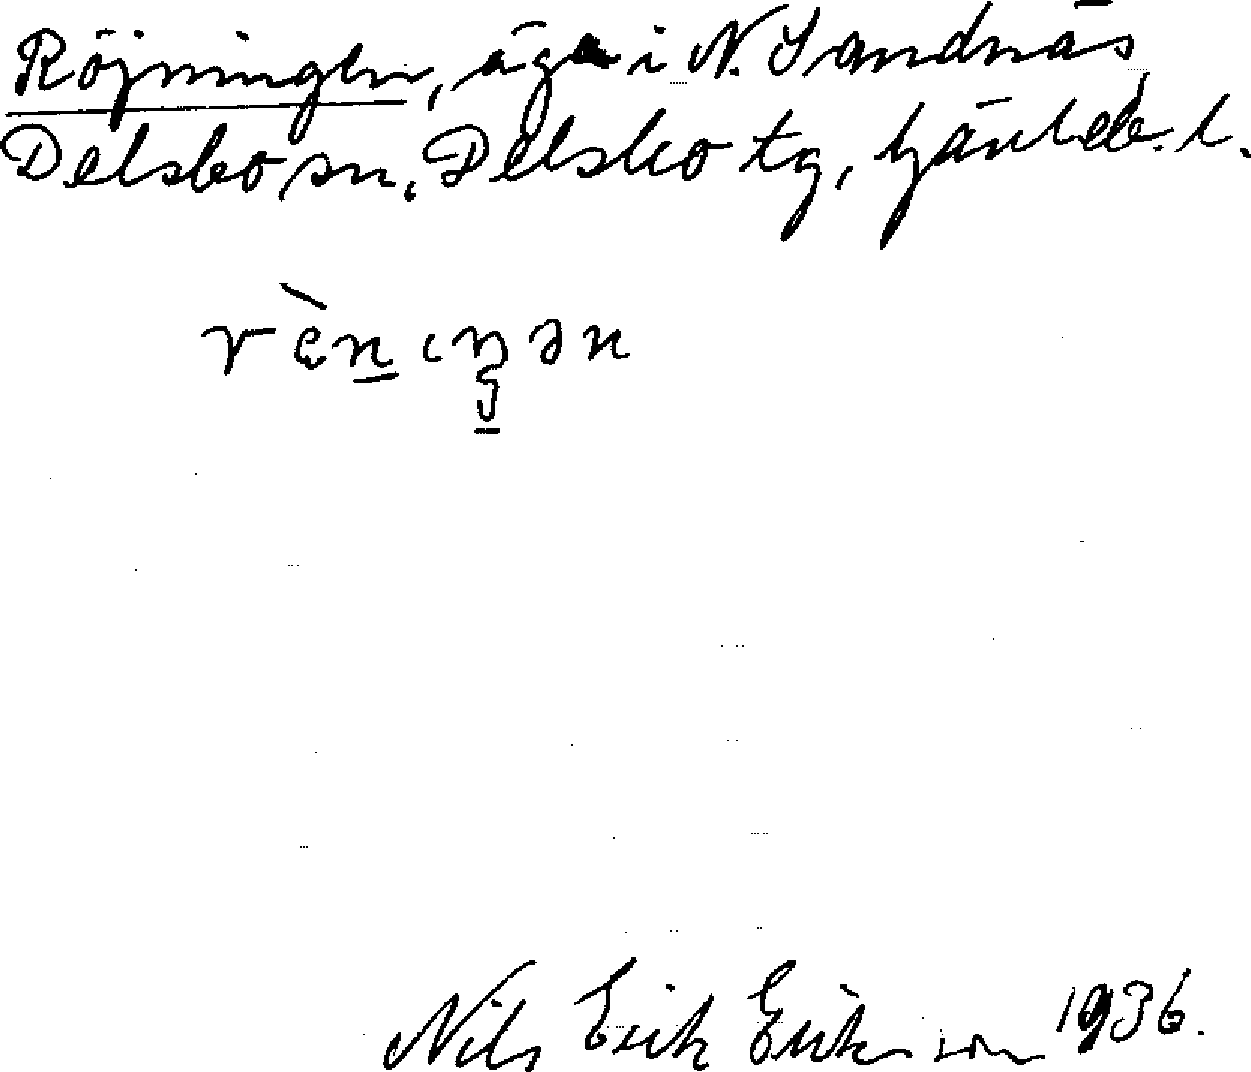 Röjningen, äga i N. Sandnäs,
Delsbo sn. Delsbo tg, Gävleb. l.
Nils Erik Eriksson 1936.